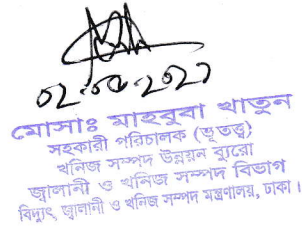 মোসাঃ মাহবুবা খাতুন
সহকারী পরিচালক (ভূতত্ত্ব)
খনিজ সম্পদ উন্নয়ন ব্যুরো
জ্বালানী ও খনিজ সম্পদ বিভাগ
বিদ্যুৎ, জ্বালানী ও খনিজ সম্পদ মন্ত্রণালয়, ঢাকা।